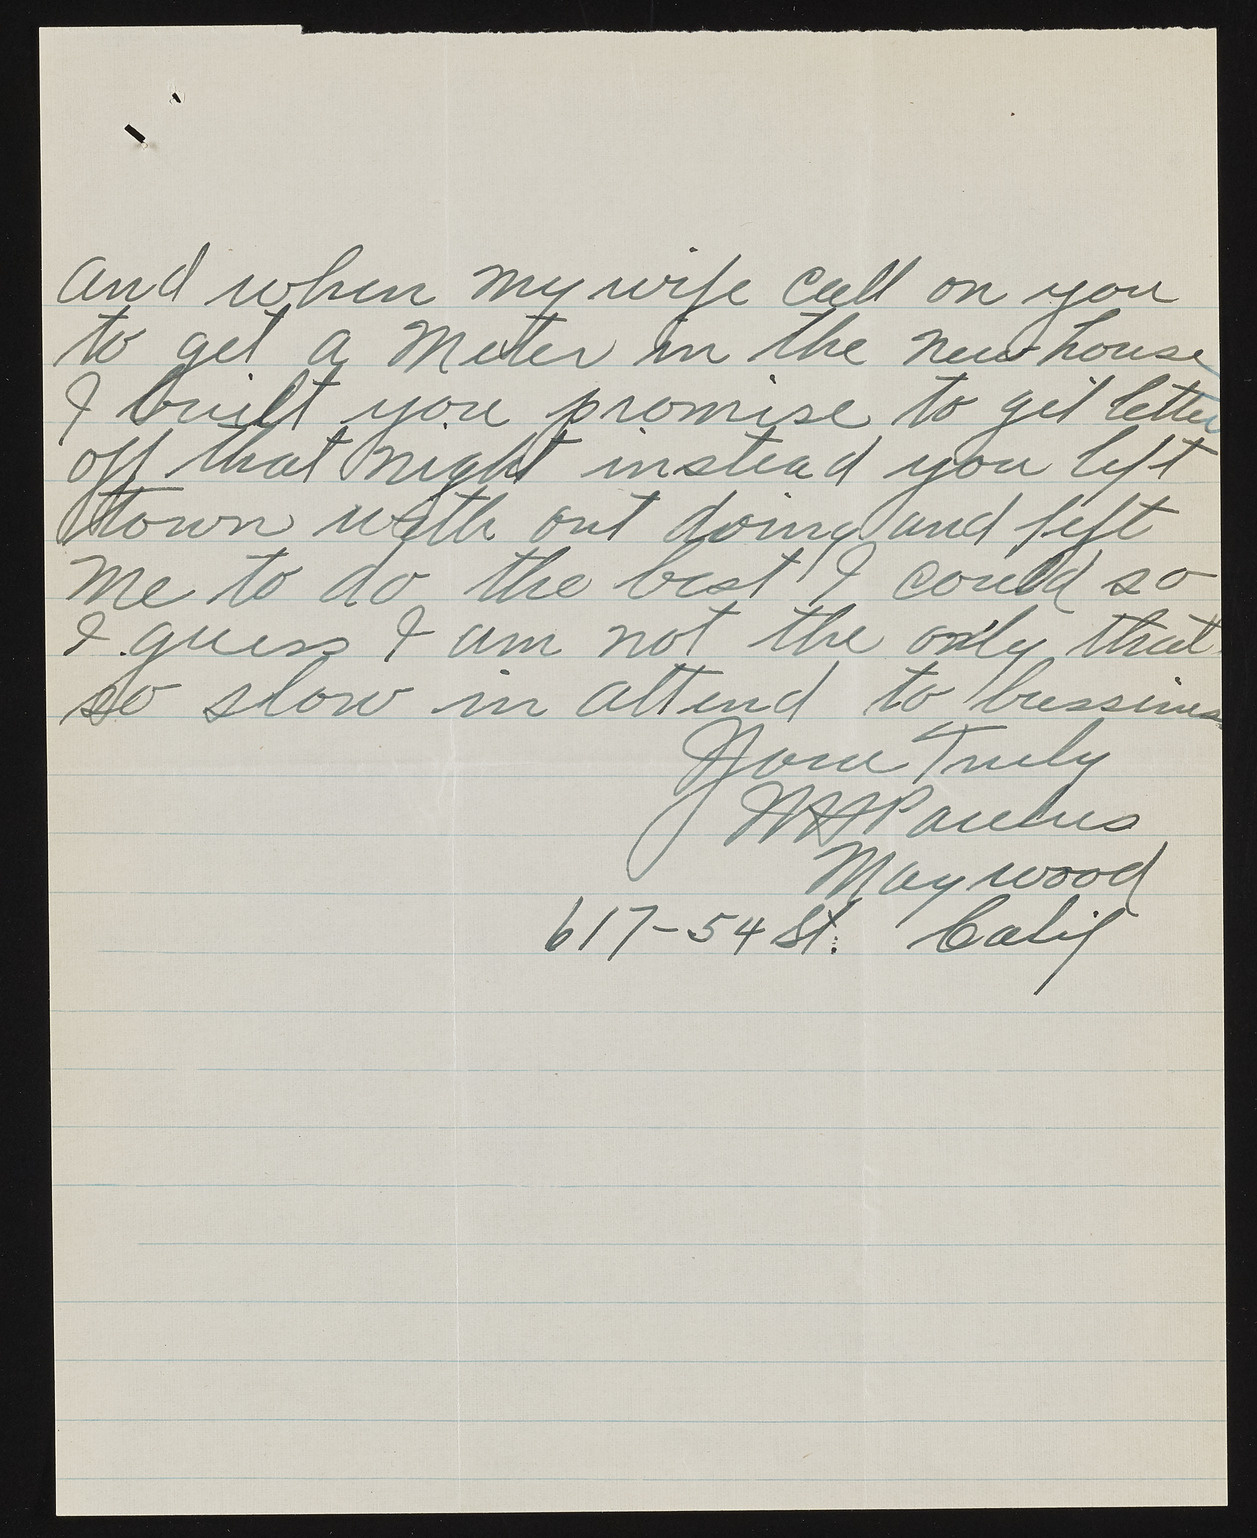 and when my wife call on you
to get a Meter in the new house
I built you promise to get letter
off that night instead you left
town with out doing and left
Me to do the best I could so
I guess I am not the only that
so slow in attend to bussiness
Your Truly
Maywood
617-54 St. Calif